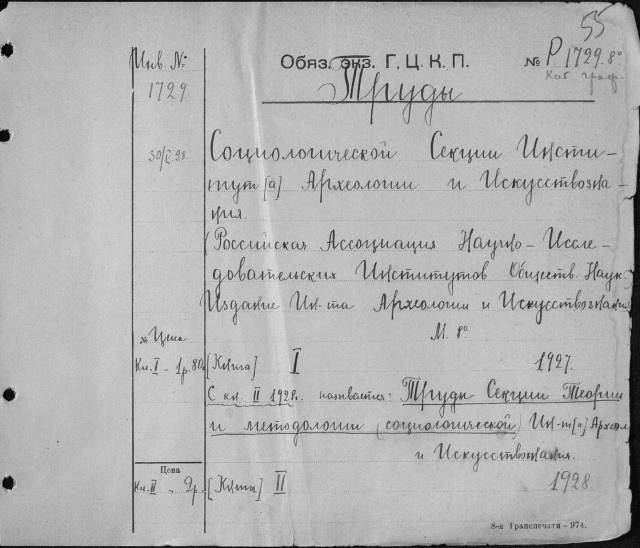 55
Инв. №
1729
Обяз. экз. Г. Ц. К. П.
№ Р 1729. 8°
Каб. граф.
Труды
30/X 28.
Социологической Секции Инсти-
тут[а] Археологии и Искусствозна-
ния.
(Российская Ассоциация Научно-Иссле-
довательских Институтов Обществ. Наук
Издание Ин-та Археологии и Искусствознания
М. 8°
№ Цена
Кн. I - 1р. 80к [Книга] I 1927.
С кн. II 1928г. называется: Труды Секции Теории
и методологии (социологической) Ин-т[а] Археол.
и Искусствознания.
1928
Цена
Кн. II - 2р. [Книга] II
8-я Транспечати - 974.